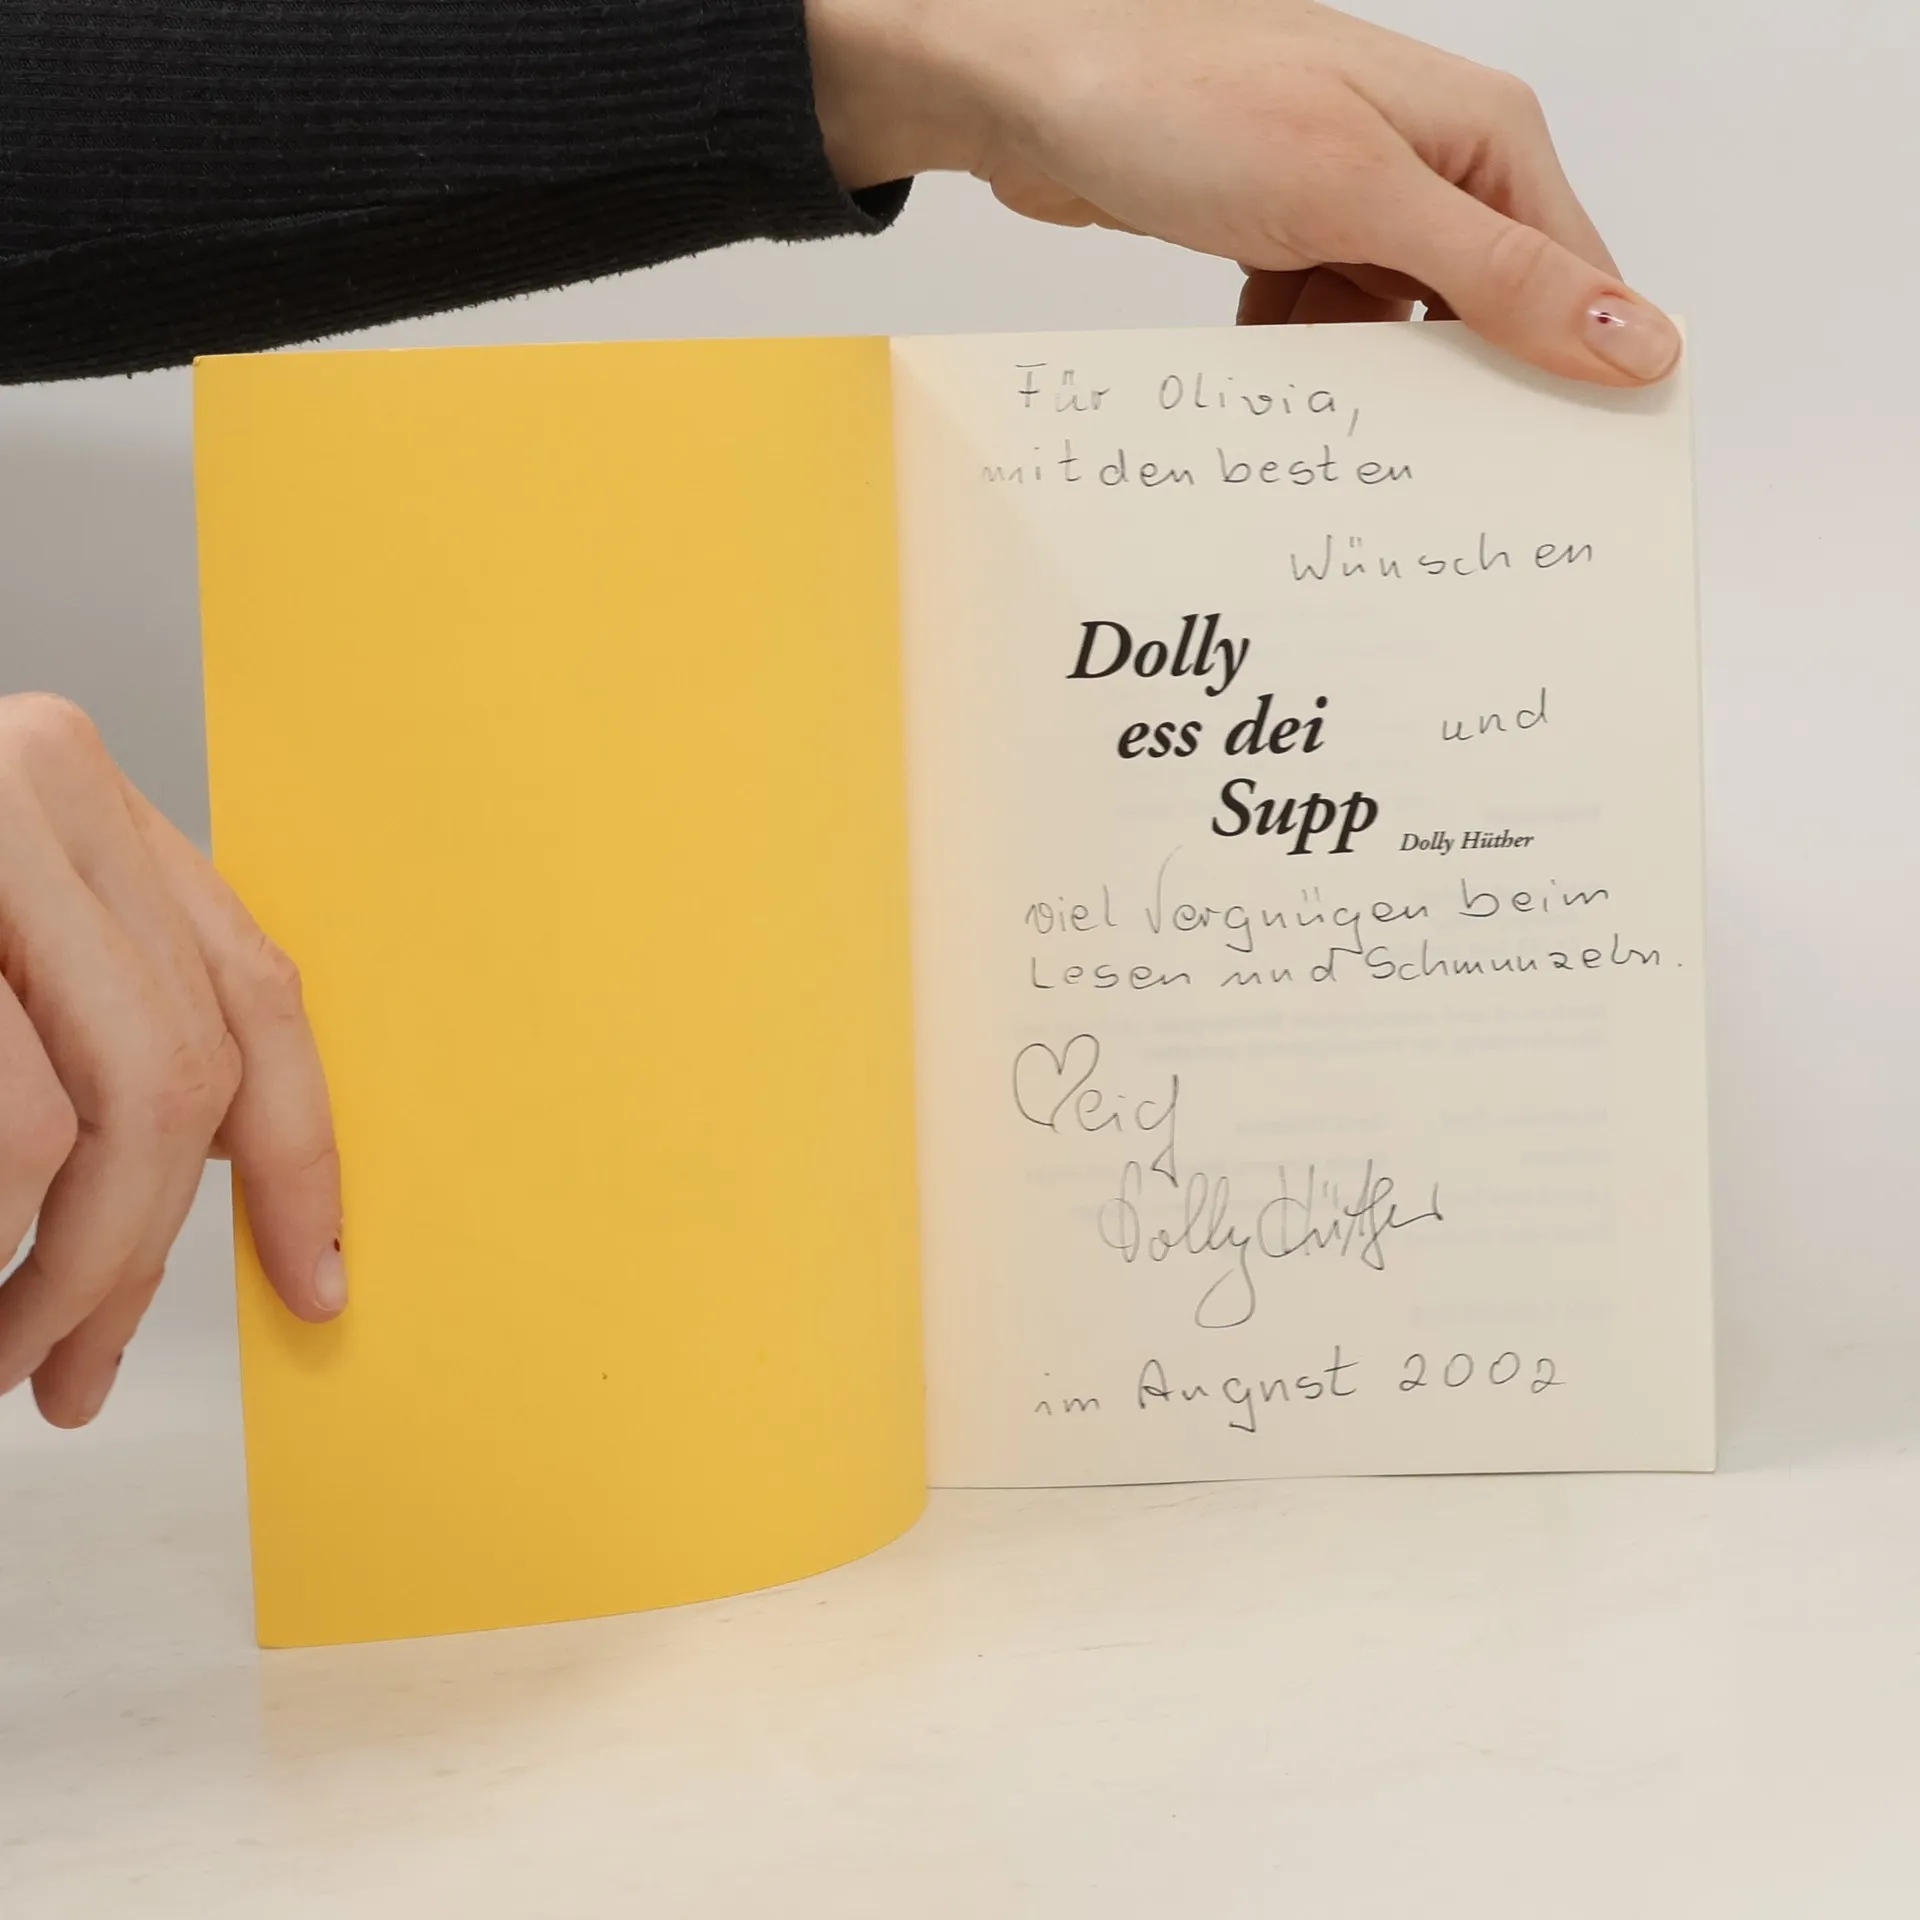 Für Olivia,
mit den besten
Wünschen
Dolly
ess dei und
Supp
Dolly Hüther
viel Vergnügen beim
Lesen und Schmunzeln.
Dolly Hüther
im August 2002